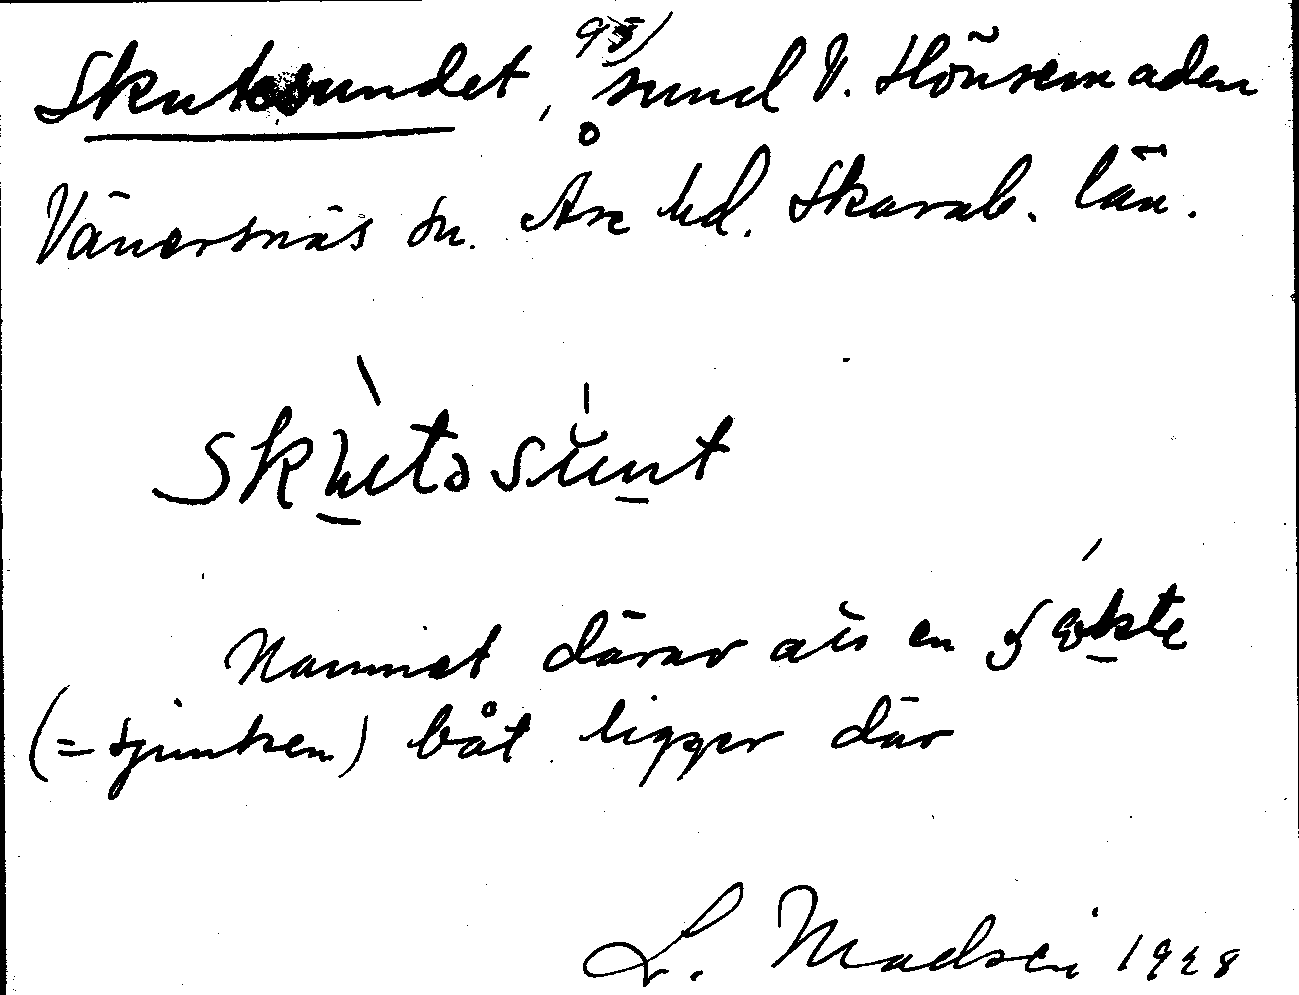 Skutesundet, sund V. Hönsemaden
Vänersnäs sn. Åse hd. Skarab. län.
Namnet därav att en
(= sjunken) båt ligger där
L. Madsén 1928